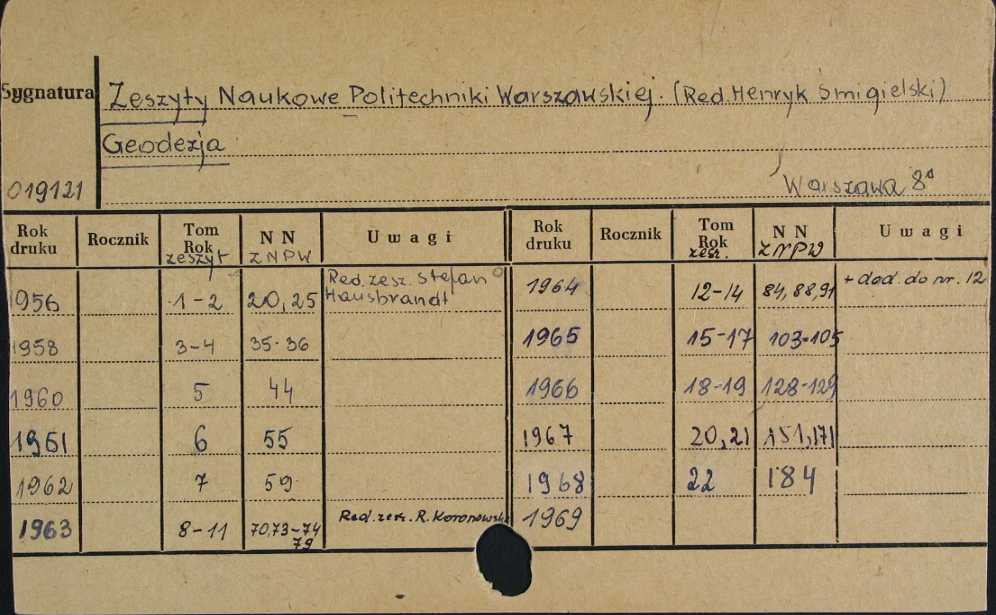 Sygnatura Zeszyty Naukowe Politechniki Warszawskiej. (Red. Henryk Śmigielski)
Geodezja
019121 Warszawa 8°
Rok druku Rocznik Tom Rok zeszyt NN ZNPW Uwagi Rok druku Rocznik Tom Rok zesz. NN ZNPW Uwagi
1956 1-2 20, 25 Red. zesz. Stefan Hausbrandt 1964 12-14 84, 88, 91 + dod. do nr. 12
1958 3-4 35-36 1965 15-17 103-105
1960 5 44 1966 18-19 128-129
1961 6 55 1967 20, 21 151, 171
1962 7 59 1968 22 184
1963 8-11 70, 73-74 79 Red. zesz. R. Koronowski 1969